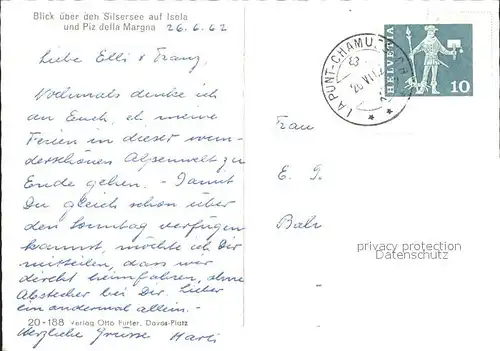 Blick über den Silsersee auf Isola
und Piz della Margna 26.6.62
Liebe Elli & Franz,
Nochmals denke ich
an Euch, ehe meine
Ferien in dieser wun-
derschönen Alpenwelt zu
Ende gehen. - Damit
Du gleich schon über
den Sonntag verfügen
kannst, möchte ich Dir
mitteilen, dass wir
direkt heimfahren, ohne
Abstecher bei Dir. Lieber
ein andermal allein. -
20-188 Verlag Otto Furter, Davos-Platz
Herzliche Grüsse
HELVETIA
10
LA PUNT-CHAMU
Frau
E. G.
privacy protection
Datenschutz